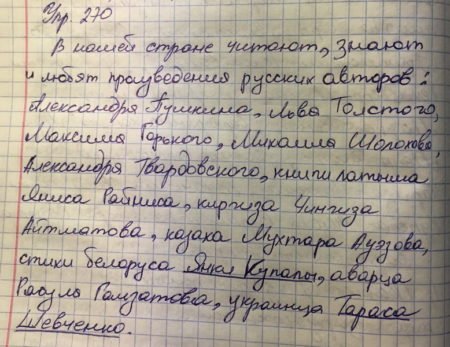 Упр. 270
В нашей стране читают, знают
и любят произведения русских авторов:
Александра Пушкина, Льва Толстого,
Максима Горького, Михаила Шолохова,
Александра Твардовского, книги латыша
Яниса Райниса, киргиза Чингиза
Айтматова, казаха Мухтара Ауэзова,
стихи белоруса Янки Купалы, аварца
Расула Гамзатова, украинца Тараса
Шевченко.